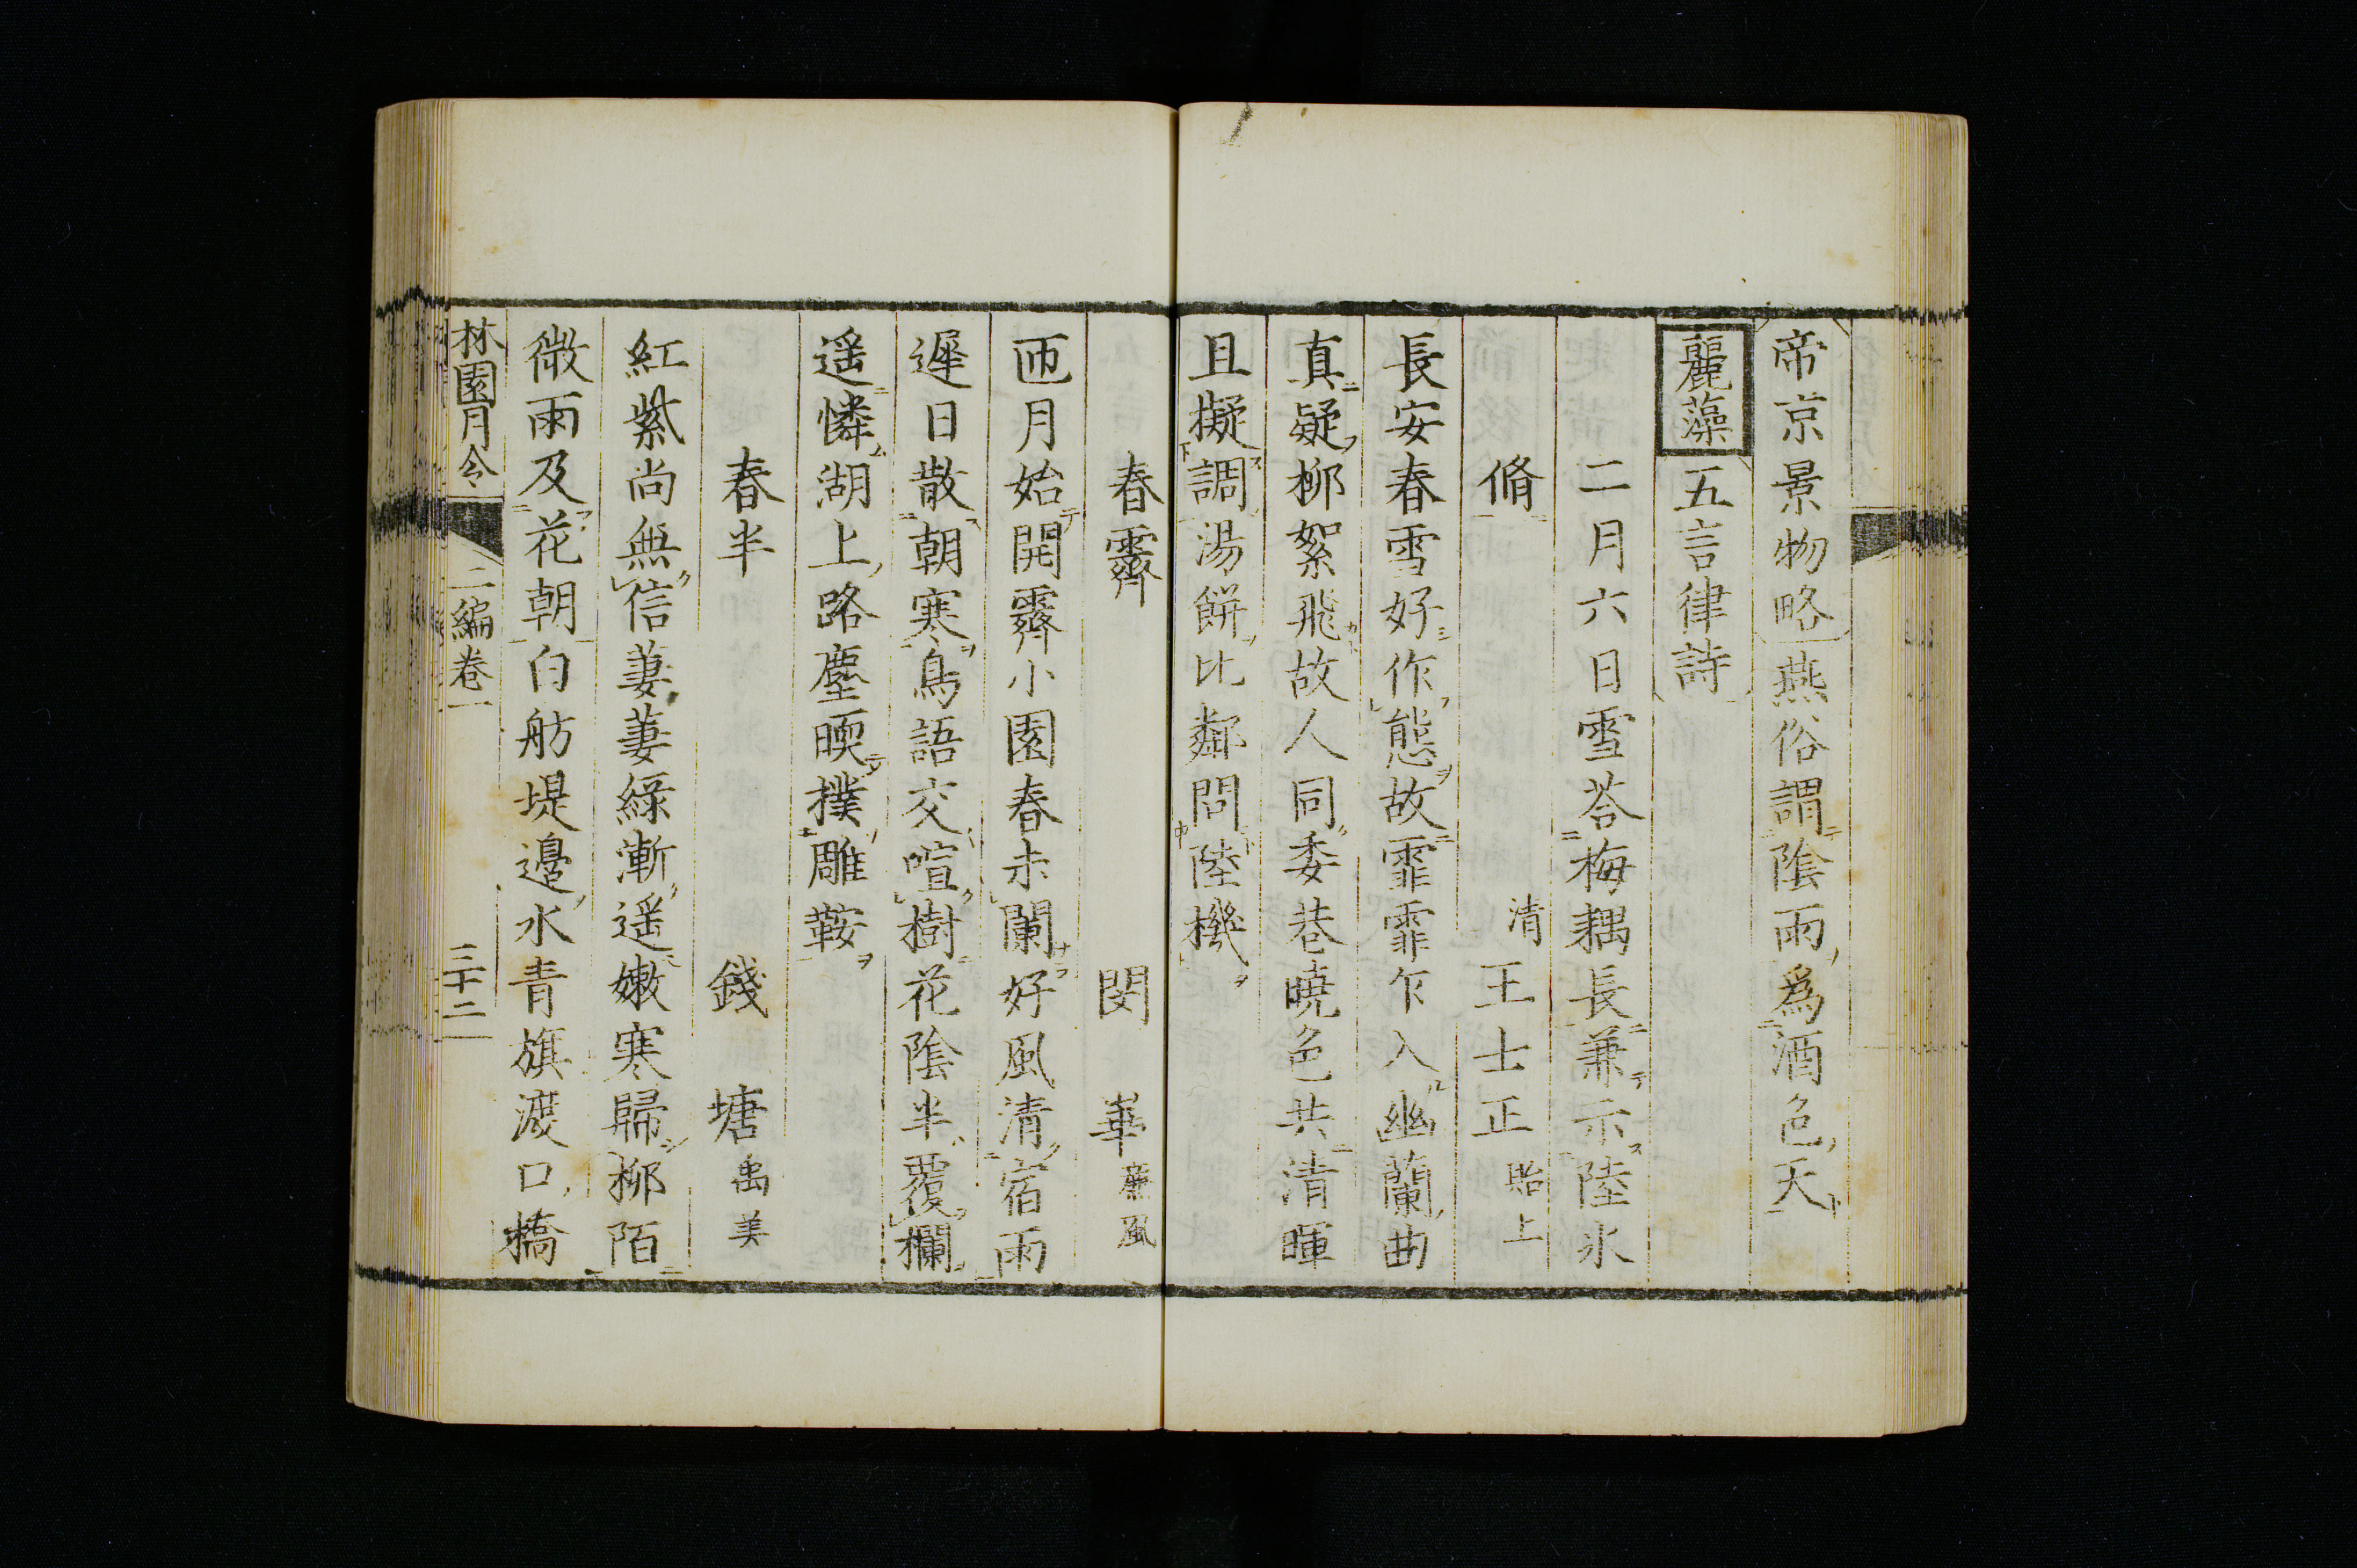 帝京景物略燕俗謂陰雨爲酒色天
麗藻五言律詩
二月六日雪荅梅耦長兼示陸氷
脩 清王士正貽上
長安春雪好作態故霏霏乍入幽蘭曲
真疑柳絮飛故人同委巷曉色共清暉
且擬調湯餅比鄰問陸機
春霽 閔 崋廉風
匝月始開霽小園春未闌好風清宿雨
遲日散朝寒鳥語交喧樹花陰半覆欄
遥憐湖上路塵暖撲雕鞍
春半 錢 塘禹美
紅紫尚無信萋萋綠漸遥嫩寒歸柳陌
微雨及花朝白舫堤邊水青旗渡口橋
林園月令 二編卷一 三十二